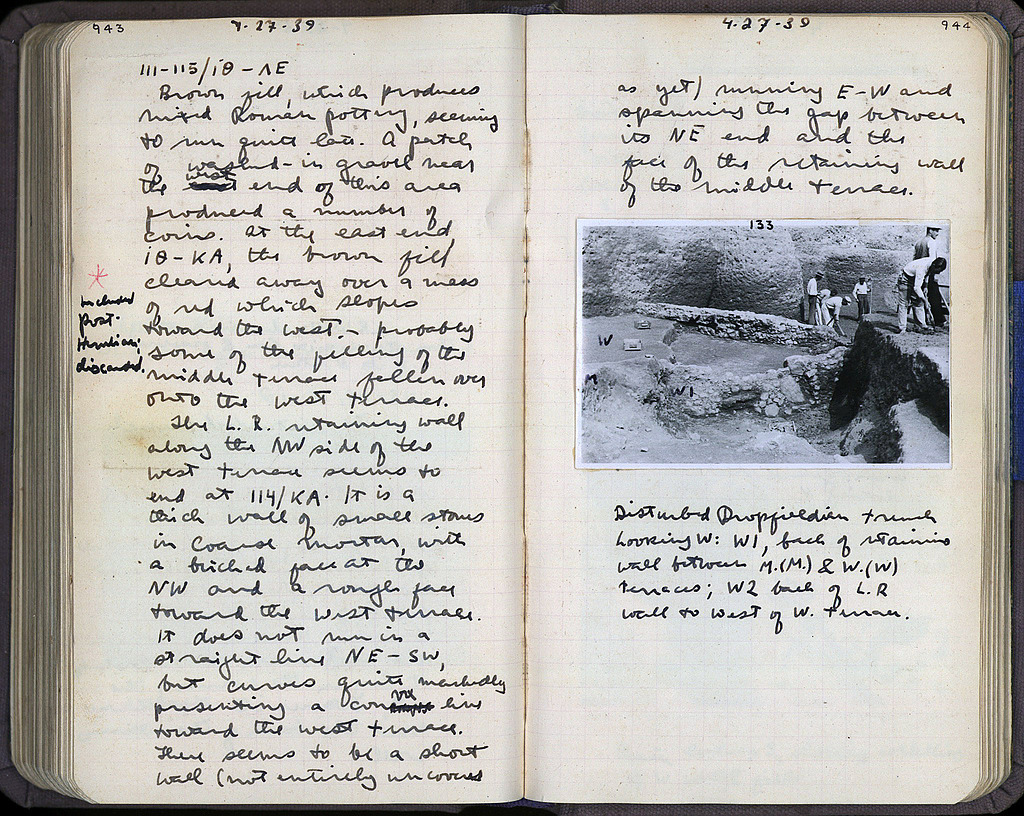 943
4-27-39
111-115/ΙΘ-ΛΕ
Brown fill, which produces
mixed Roman pottery, seeming
to run quite late. A patch
of washed-in gravel near
the west end of this area
produced a number of
coins. At the east end,
ΙΘ-ΚΑ, the brown fill
cleared away over a mess
of red which slopes
toward the west - probably
some of the filling of the
middle terrace fallen over
onto the west terrace.
The L.R. retaining wall
along the NW side of the
west terrace seems to
end at 114/ΚΑ. It is a
thick wall of small stones
in coarse mortar, with
a bricked face at the
NW and a rough face
toward the west terrace.
It does not run in a
straight line NE-SW,
but curves quite markedly
presenting a convex line
toward the west terrace.
There seems to be a short
wall (not entirely uncovered
*
included
post-
Herulian;
discarded.
4-27-39
944
as yet) running E-W and
spanning the gap between
its NE end and the
face of the retaining wall
of the middle terrace.
133
W
W1
Disturbed Dropfeldian trench
Looking W: W1, back of retaining
wall between M.(M.) & W.(W)
terraces; W2 back of L.R
wall to west of W. terrace.